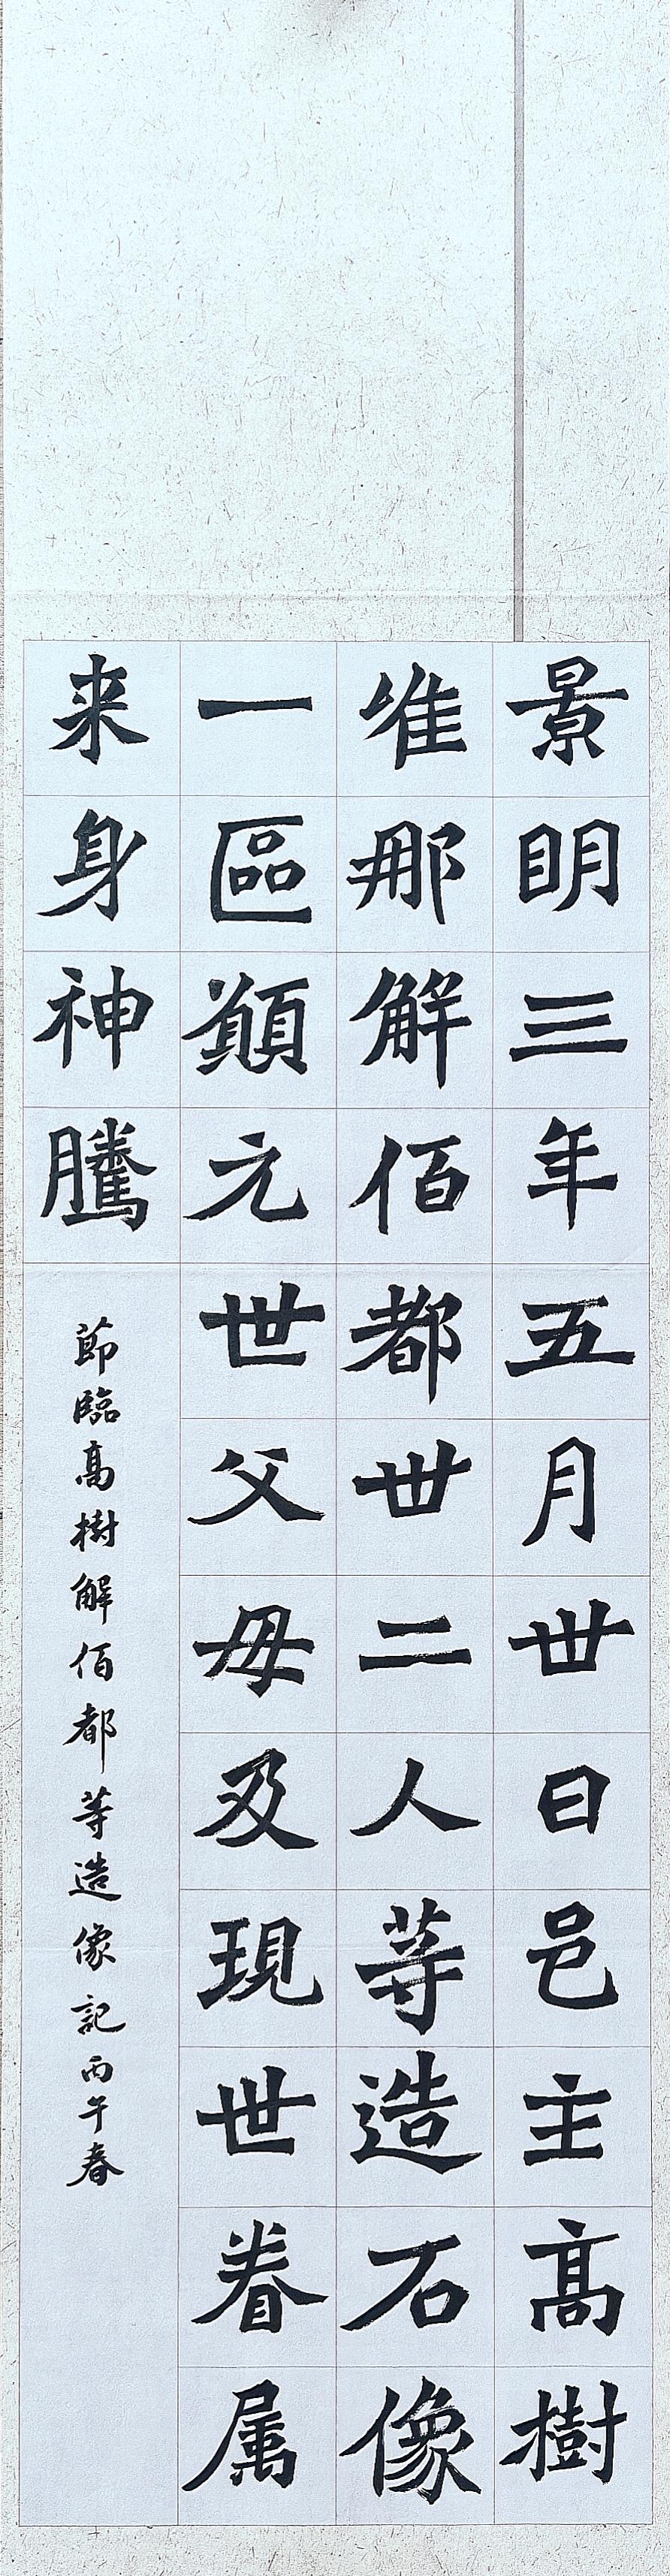 景明三年五月丗日邑主高樹
唯那解佰都丗二人等造石像
一區願元世父母及現世眷属
来身神騰
節臨高樹解佰都等造像記丙午春